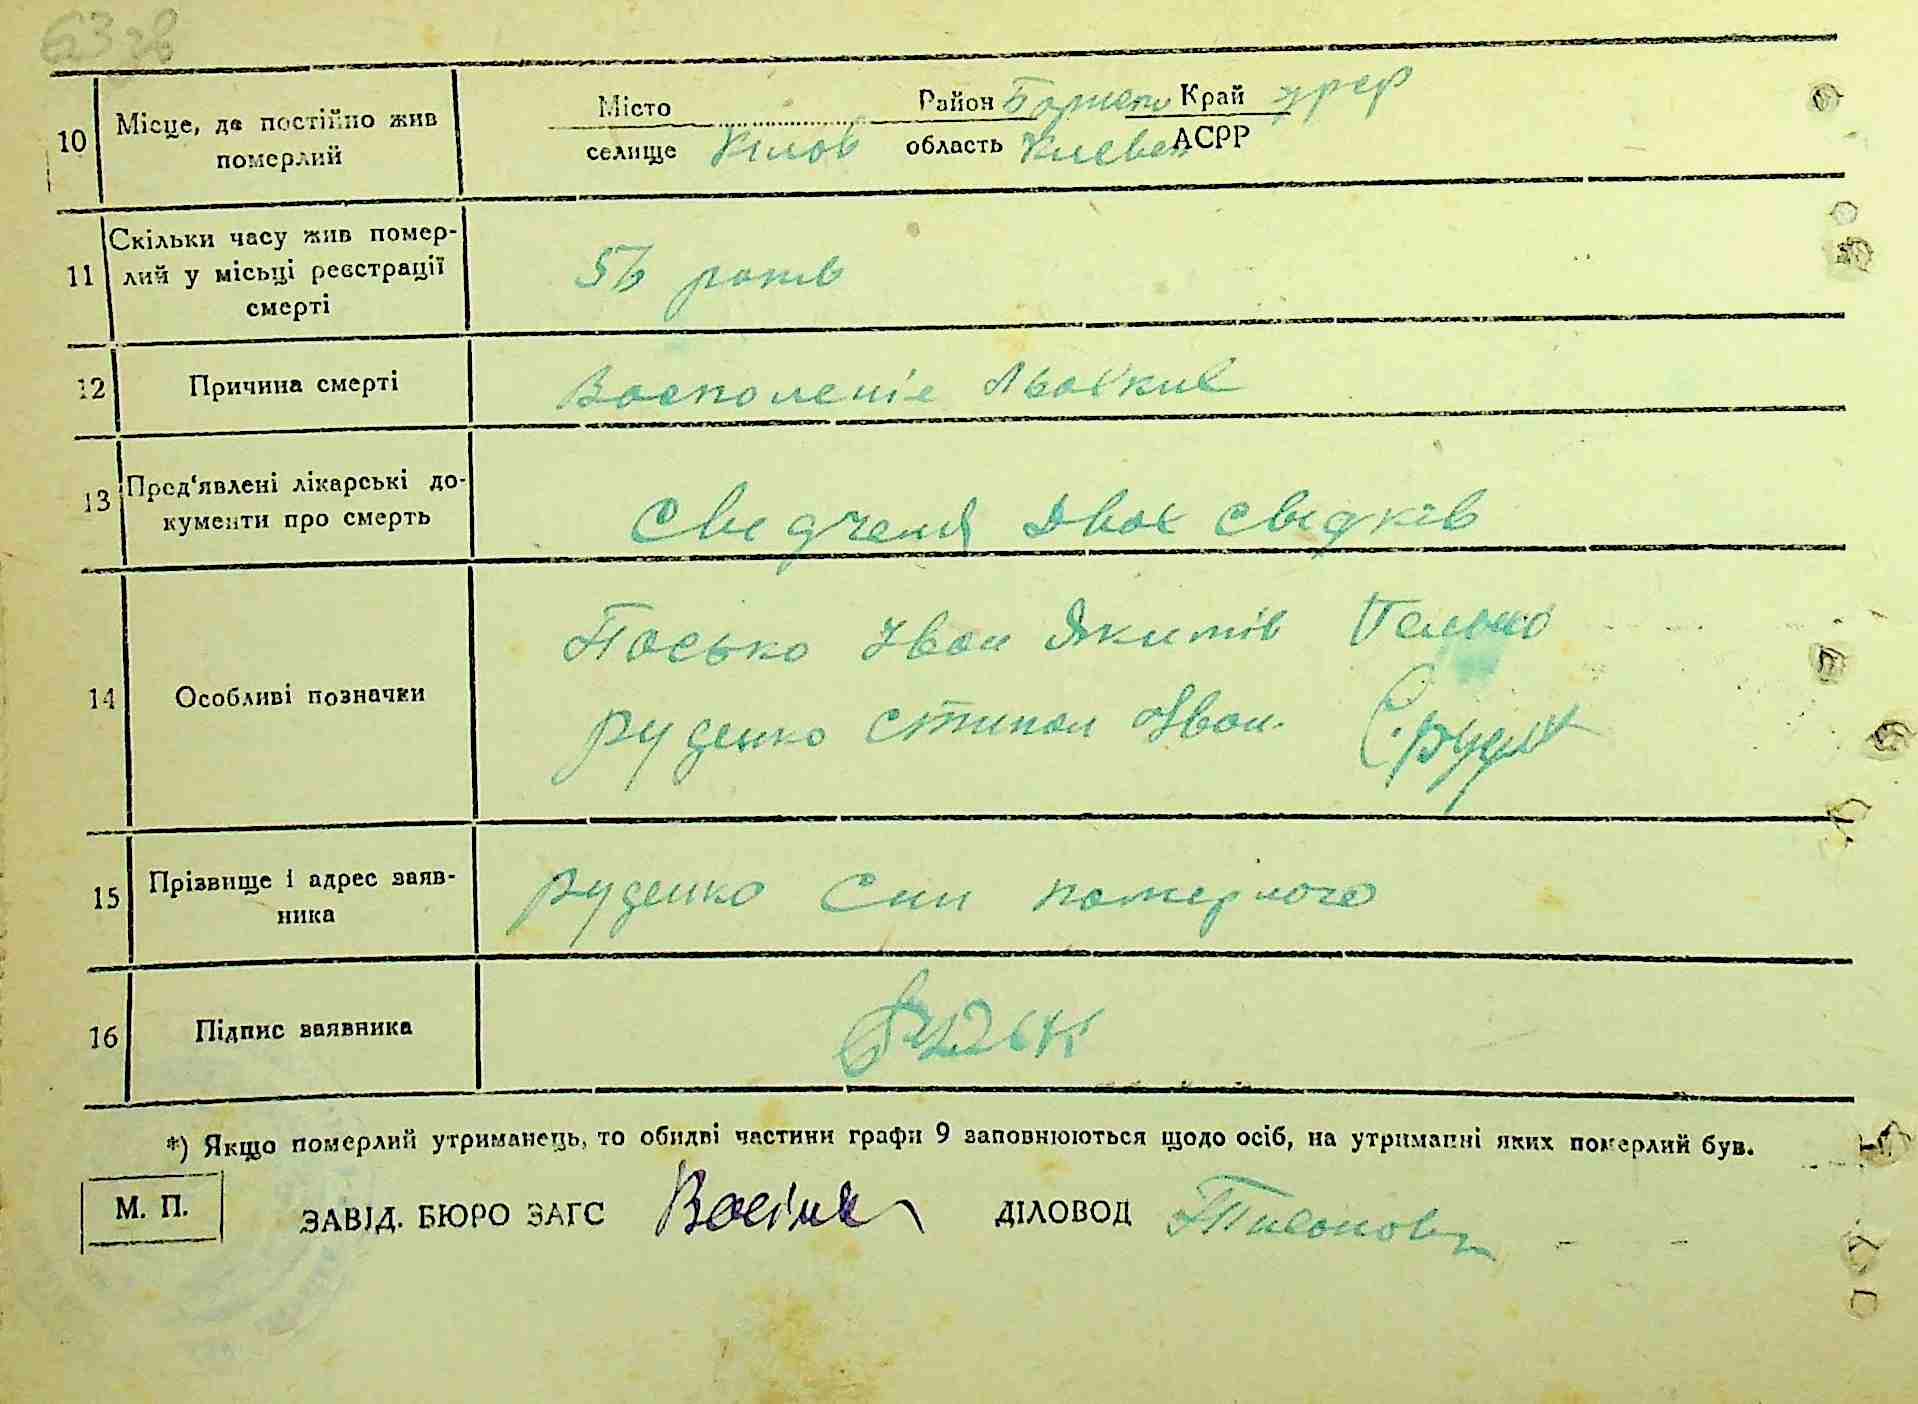 63 зв
10 Місце, де постійно жив померлий
Місто Район Борисп Край УРСР
селище Кілов область Киевск АСРР
11 Скільки часу жив помер-
лий у місьці реєстрації
смерті
56 років
12 Причина смерті
Восполеніе
13 Пред'явлені лікарські до-
кументи про смерть
Свідченя двох свідків
14 Особливі позначки
Посько Іван Якимів
Руденко Стипан Іван.
15 Прізвище і адрес заяв-
ника
Руденко Син померлого
16 Підпис заявника
*) Якщо померлий утриманець, то обидві частини графи 9 заповнюються щодо осіб, на утриманні яких померлий був.
М. П.
ЗАВІД. БЮРО ЗАГС ДІЛОВОД